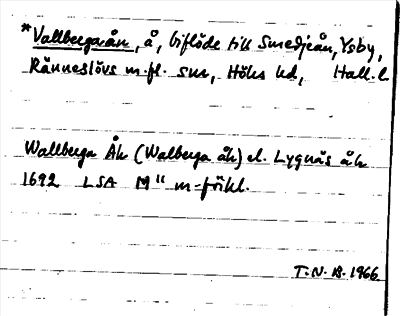 *Vallbergaån, å, biflöde till Smedjeån, Ysby,
Ränneslövs m.fl. snr, Höks hd, Hall. l.
Wallberga Åh (Walberga åh) el. Lygnäs åh
1692 LSA M" m-förkl.
T.N.B. 1966